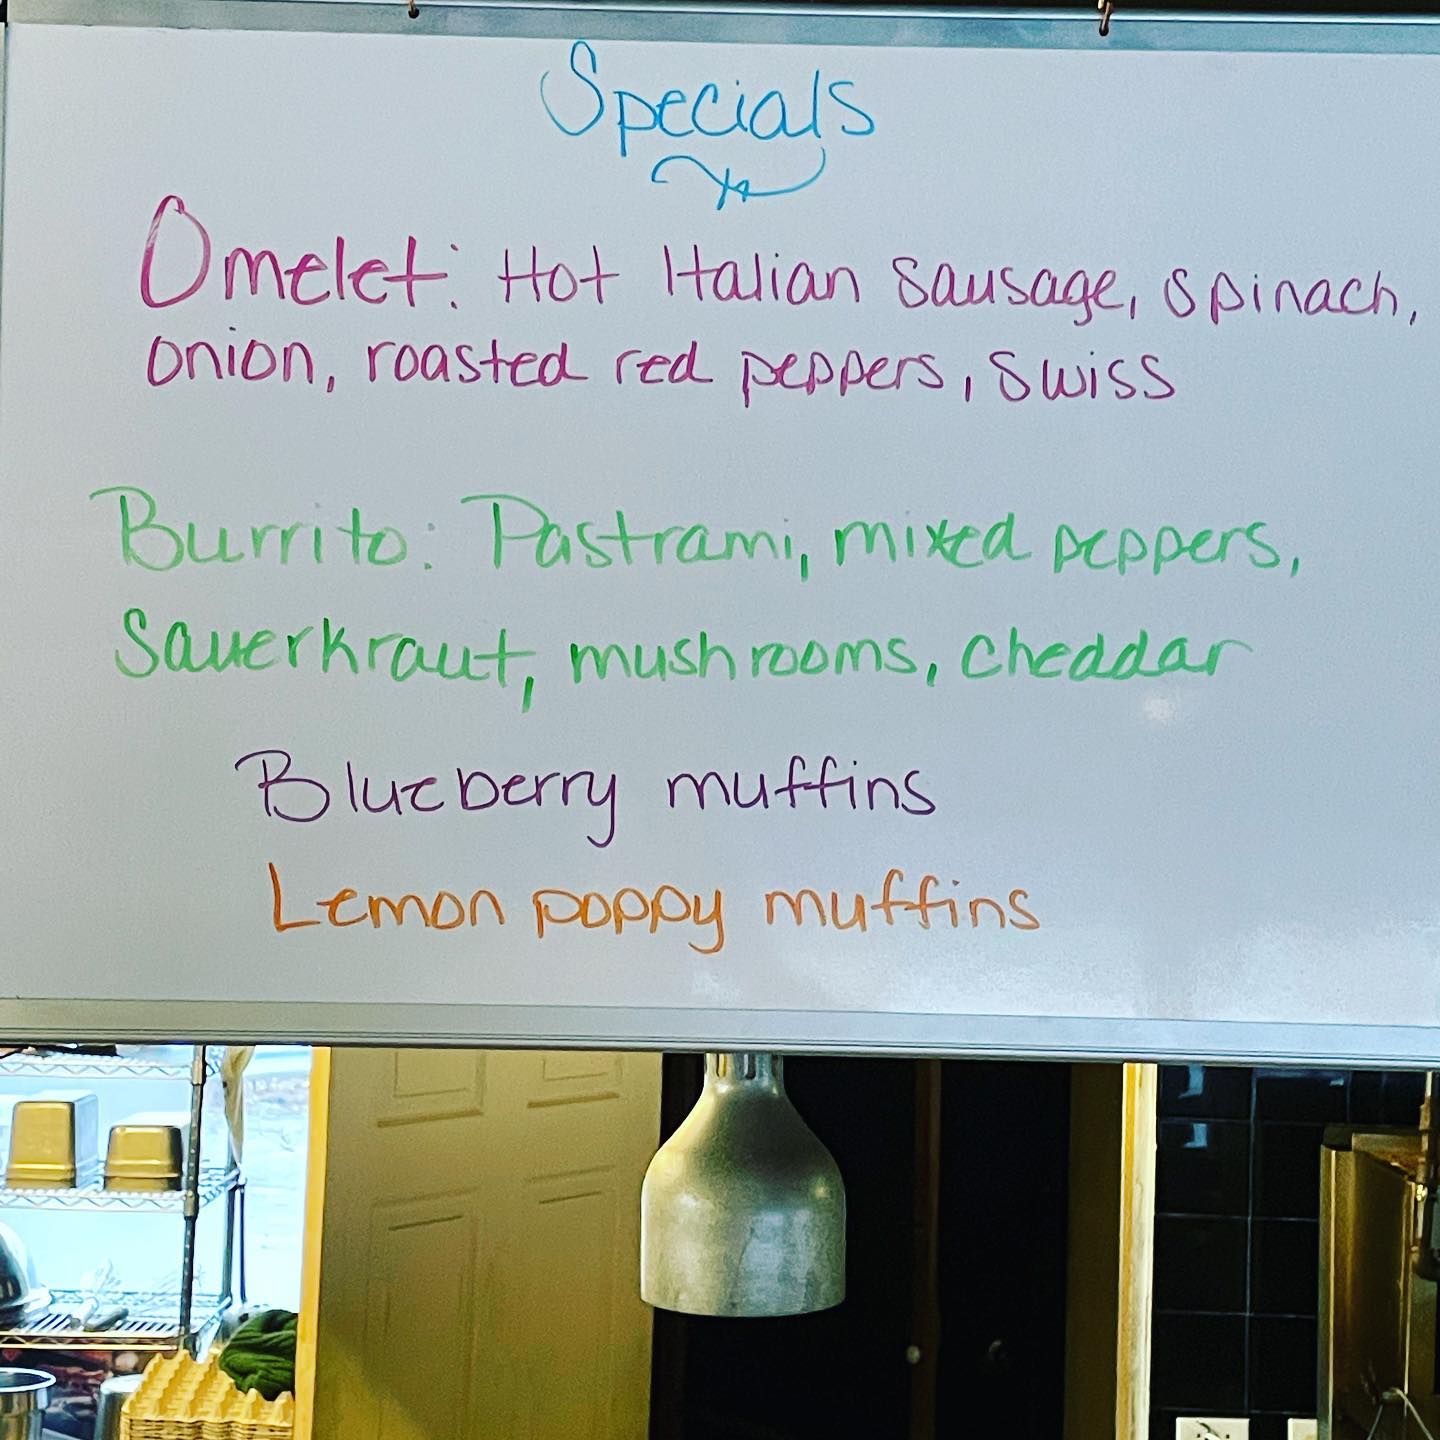 Specials
Omelet: Hot Italian sausage, spinach,
onion, roasted red peppers, swiss
Burrito: Pastrami, mixed peppers,
Sauerkraut, mushrooms, cheddar
Blueberry muffins
Lemon poppy muffins